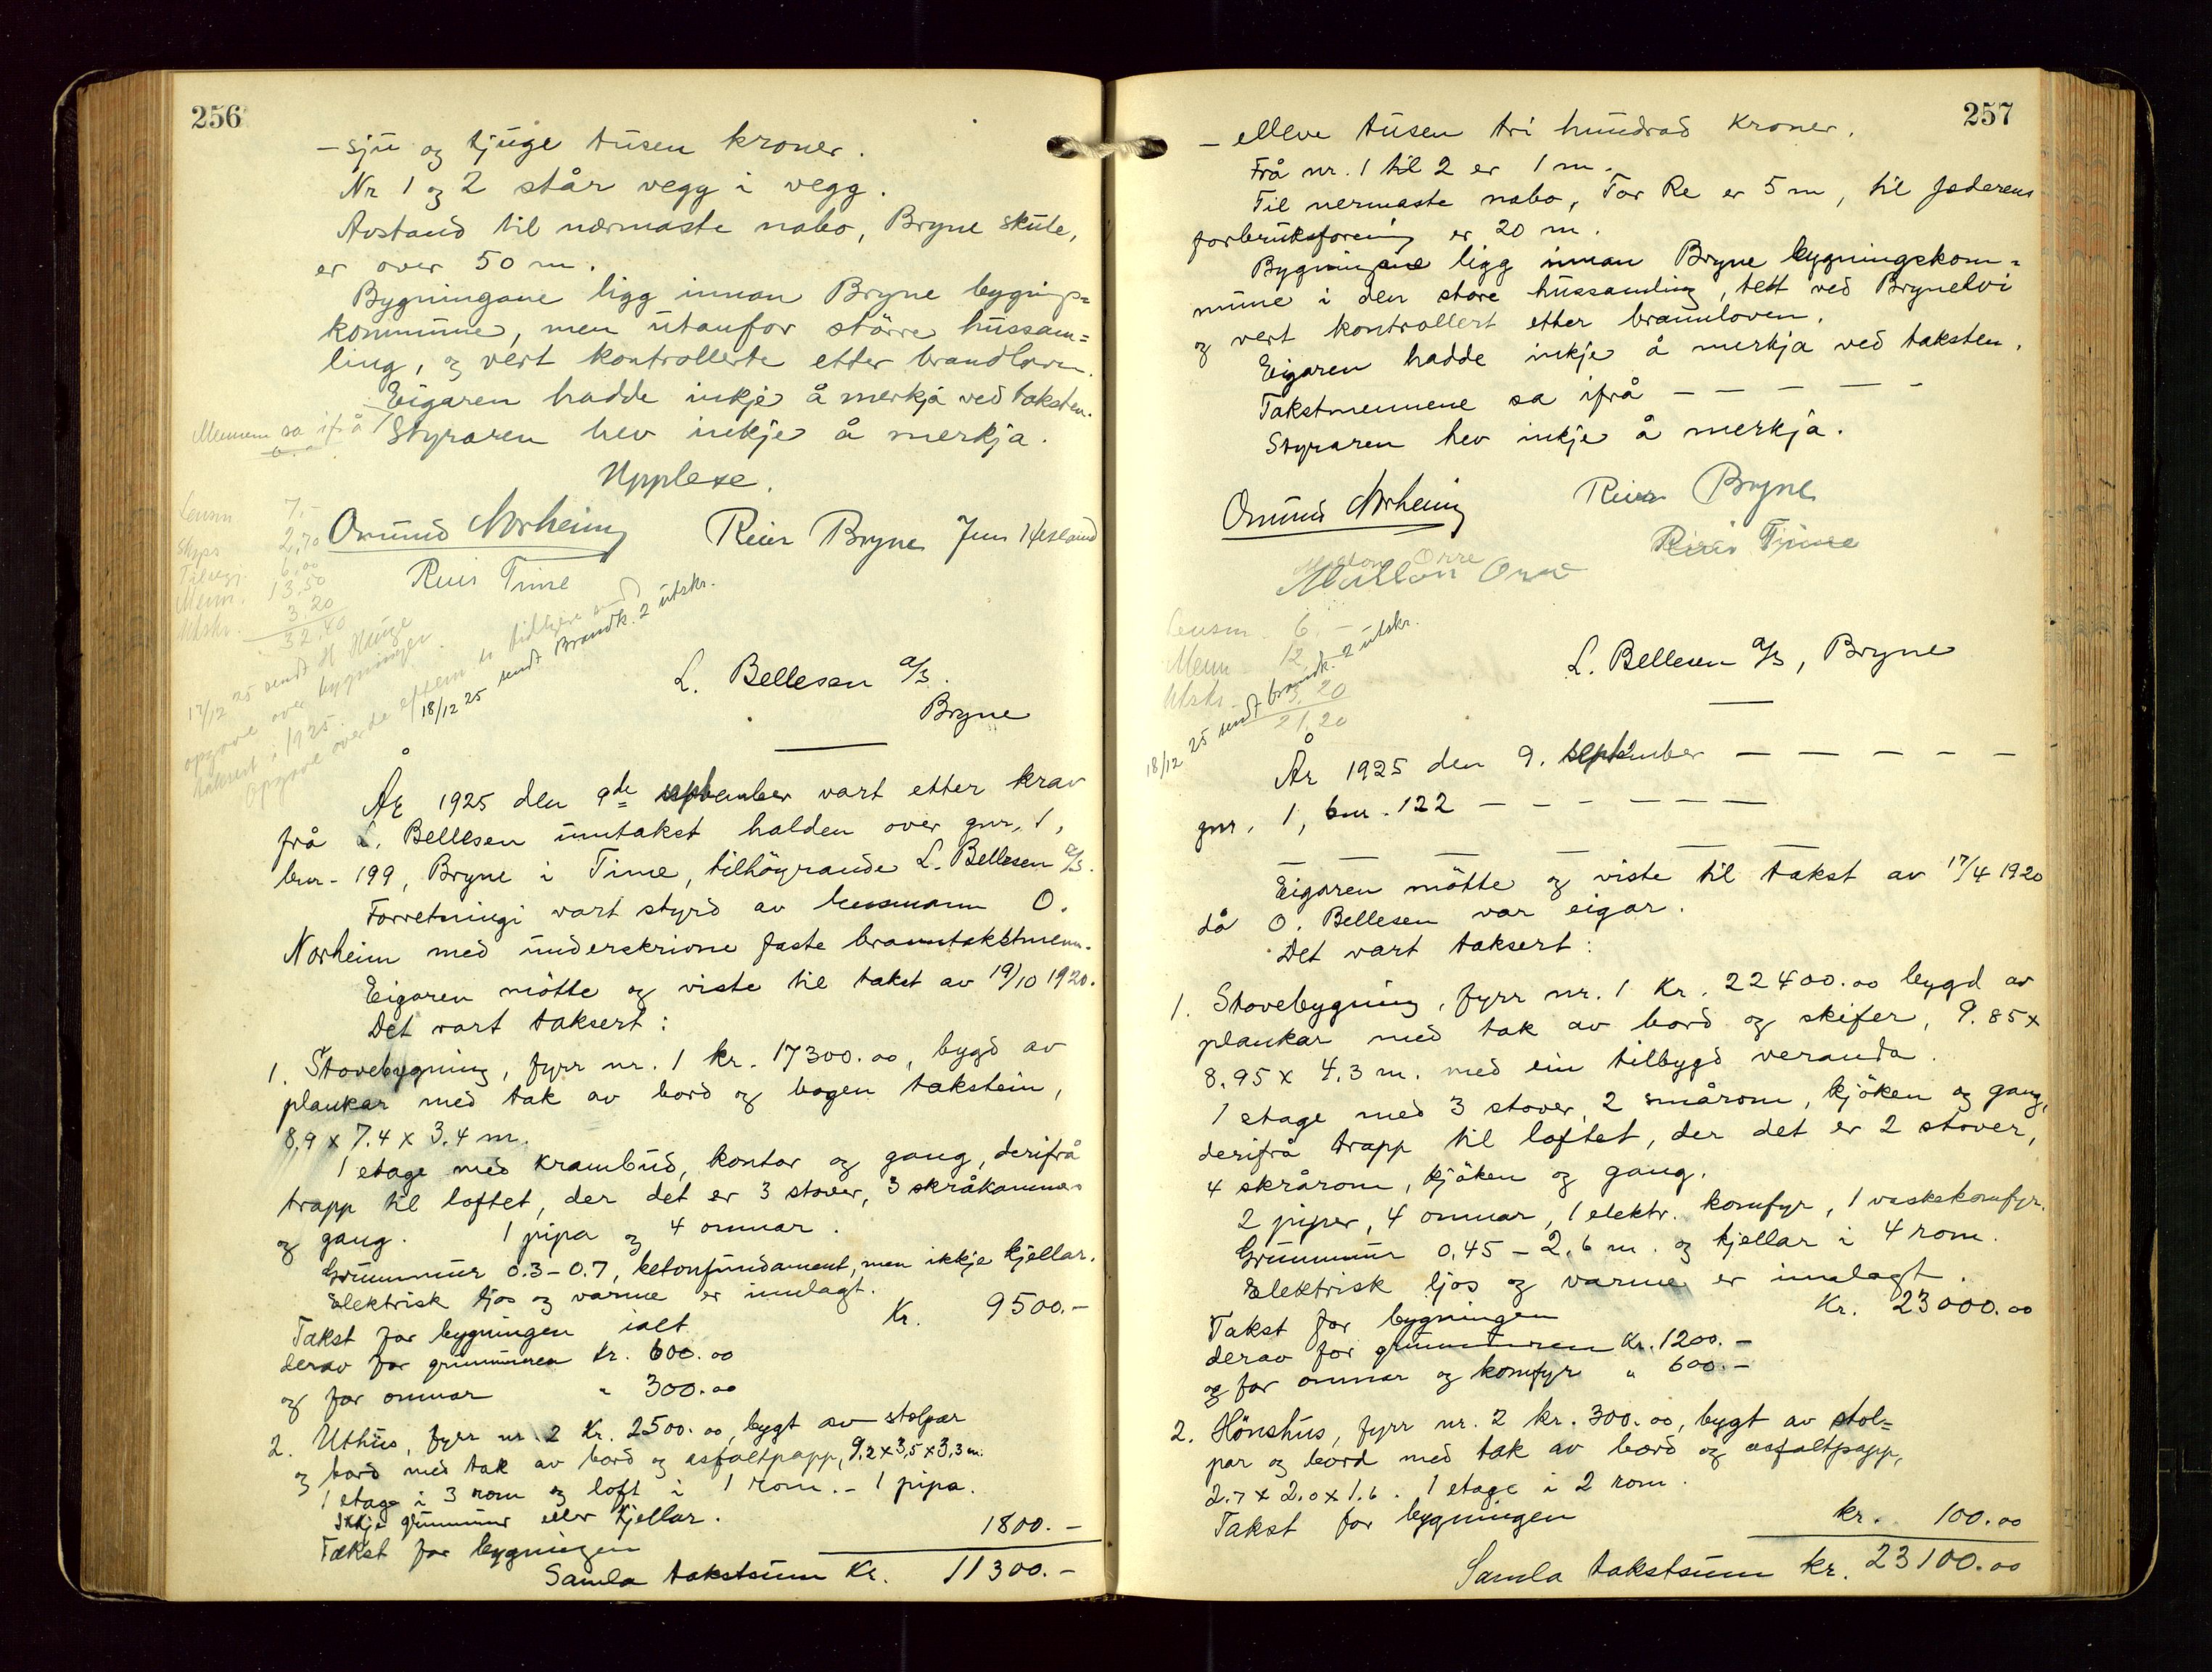 256
– sju og tjuge tusen kroner.
Nr 1 og 2 står vegg i vegg.
Avstand til nærmaste nabo, Bryne skule,
er over 50 m.
Bygningane ligg innan Bryne bygnings=
kommune, men utanfor större hussam=
ling, og vert kontrollerte etter brandloven.
Eigaren hadde inkje å merkja ved taksten.
Mennene sa ifrå
Styraren hev inkje å merkja.
Upplese.
Lensm 7.-
Skyss 2,70
Tilsegj. 6,00
Menn. 13,50
Utskr. 3,20
32,40
Omund Norheim Reier Bryne Jens Hesland
Reier Time
17/12 25 sendt H Hauge
opgave over bygningen
taksert i 1925.
Opgave over de
18/12 25 sendt Brandk. 2 utskr.
L. Bellesen a/s.
Bryne
År 1925 den 9de september vart etter krav
frå L. Bellesen unntakst halden over gnr. 1,
bnr. 199, Bryne i Time, tilhöyrande L. Bellesen a/s.
Forretningi vart styrd av lensmann O.
Norheim med underskrivne faste branntakstmenn.
Eigaren mötte og viste til takst av 19/10 1920.
Det vart taksert:
1. Stovebygning, fyrr nr. 1 kr. 17300.00, bygd av
plankar med tak av bord og bogen takstein,
8.9 x 7.4 x 3.4 m.
1 etage med krambud, kontor og gang, derifrå
trapp til loftet, der det er 3 stover, 3 skråkammer
og gang. 1 pipa og 4 omnar.
Grunnmur 0.3–0.7, betonfundament, men ikkje kjellar.
Elektrisk ljos og varme er innlagt.
Takst for bygningen ialt Kr. 9500.–
derav for grunnmuren kr. 600.00
og for omnar " 300.00
2. Uthus, fyrr nr. 2 Kr. 2500.00, bygt av stolpar
og bord med tak av bord og asfaltpapp, 9,2 x 3,5 x 3,3 m.
1 etage i 3 rom og loft i 1 rom. – 1 pipa.
Ikkje grunnmur eller kjellar.
Takst for bygningen 1800.–
Samla takstsum Kr. 11300.–
257
– elleve tusen tri hundrad kroner.
Frå nr. 1 til 2 er 1 m.
Til nermaste nabo, Tor Re er 5 m, til Jæderens
forbruksforening er 20 m.
Bygningane ligg innan Bryne bygningskom=
mune i den store hussamling, tett ved Brynelvi
og vert kontrollert etter brannloven.
Eigaren hadde inkje å merkja ved taksten.
Takstmennene sa ifrå – – – – –
Styraren hev inkje å merkja.
Omund Norheim Reier Bryne
Reier Time
Orre
Orre
Lensm. 6.–
Menn 12,
Utskr. 3,20
21,20
18/12 25 sendt brandk. 2 utskr.
L. Bellesen a/s, Bryne
År 1925 den 9. september – – – – –
gnr. 1, bnr. 122 – – – – – –
– – – – – –
Eigaren mötte og viste til takst av 17/4 1920
då O. Bellesen var eigar.
Det vart taksert:
1. Stovebygning, fyrr nr. 1 Kr. 22400.00 bygd av
plankar med tak av bord og skifer, 9.85 x
8.95 x 4.3 m. med ein tilbygd veranda.
1 etage med 3 stover, 2 smårom, kjöken og gang,
derifrå trapp til loftet, der det er 2 stover,
4 skrårom, kjöken og gang.
2 piper, 4 omnar, 1 elektr. komfyr, 1 vaskekomfyr.
Grunnmur 0.45 – 2.6 m. og kjellar i 4 rom.
Elektrisk ljos og varme er innlagt.
Takst for bygningen Kr. 23000.00
derav for grunnmuren Kr. 1200.–
og for omnar og komfyr " 600.–
2. Hönshus, fyrr nr. 2 kr. 300.00, bygt av stol=
par og bord med tak av bord og asfaltpapp,
2.7 x 2.0 x 1.6. 1 etage i 2 rom.
Takst for bygningen kr. 100.00
Samla takstsum kr. 23100.00